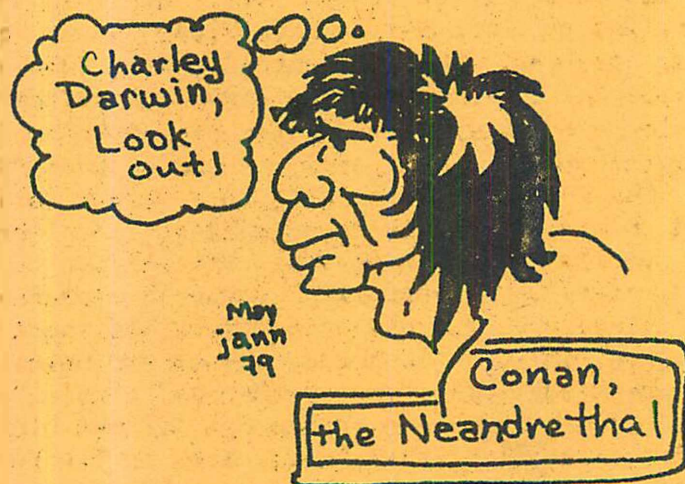 Charley
Darwin,
Look
out!
May
jann
79
Conan,
the Neandrethal